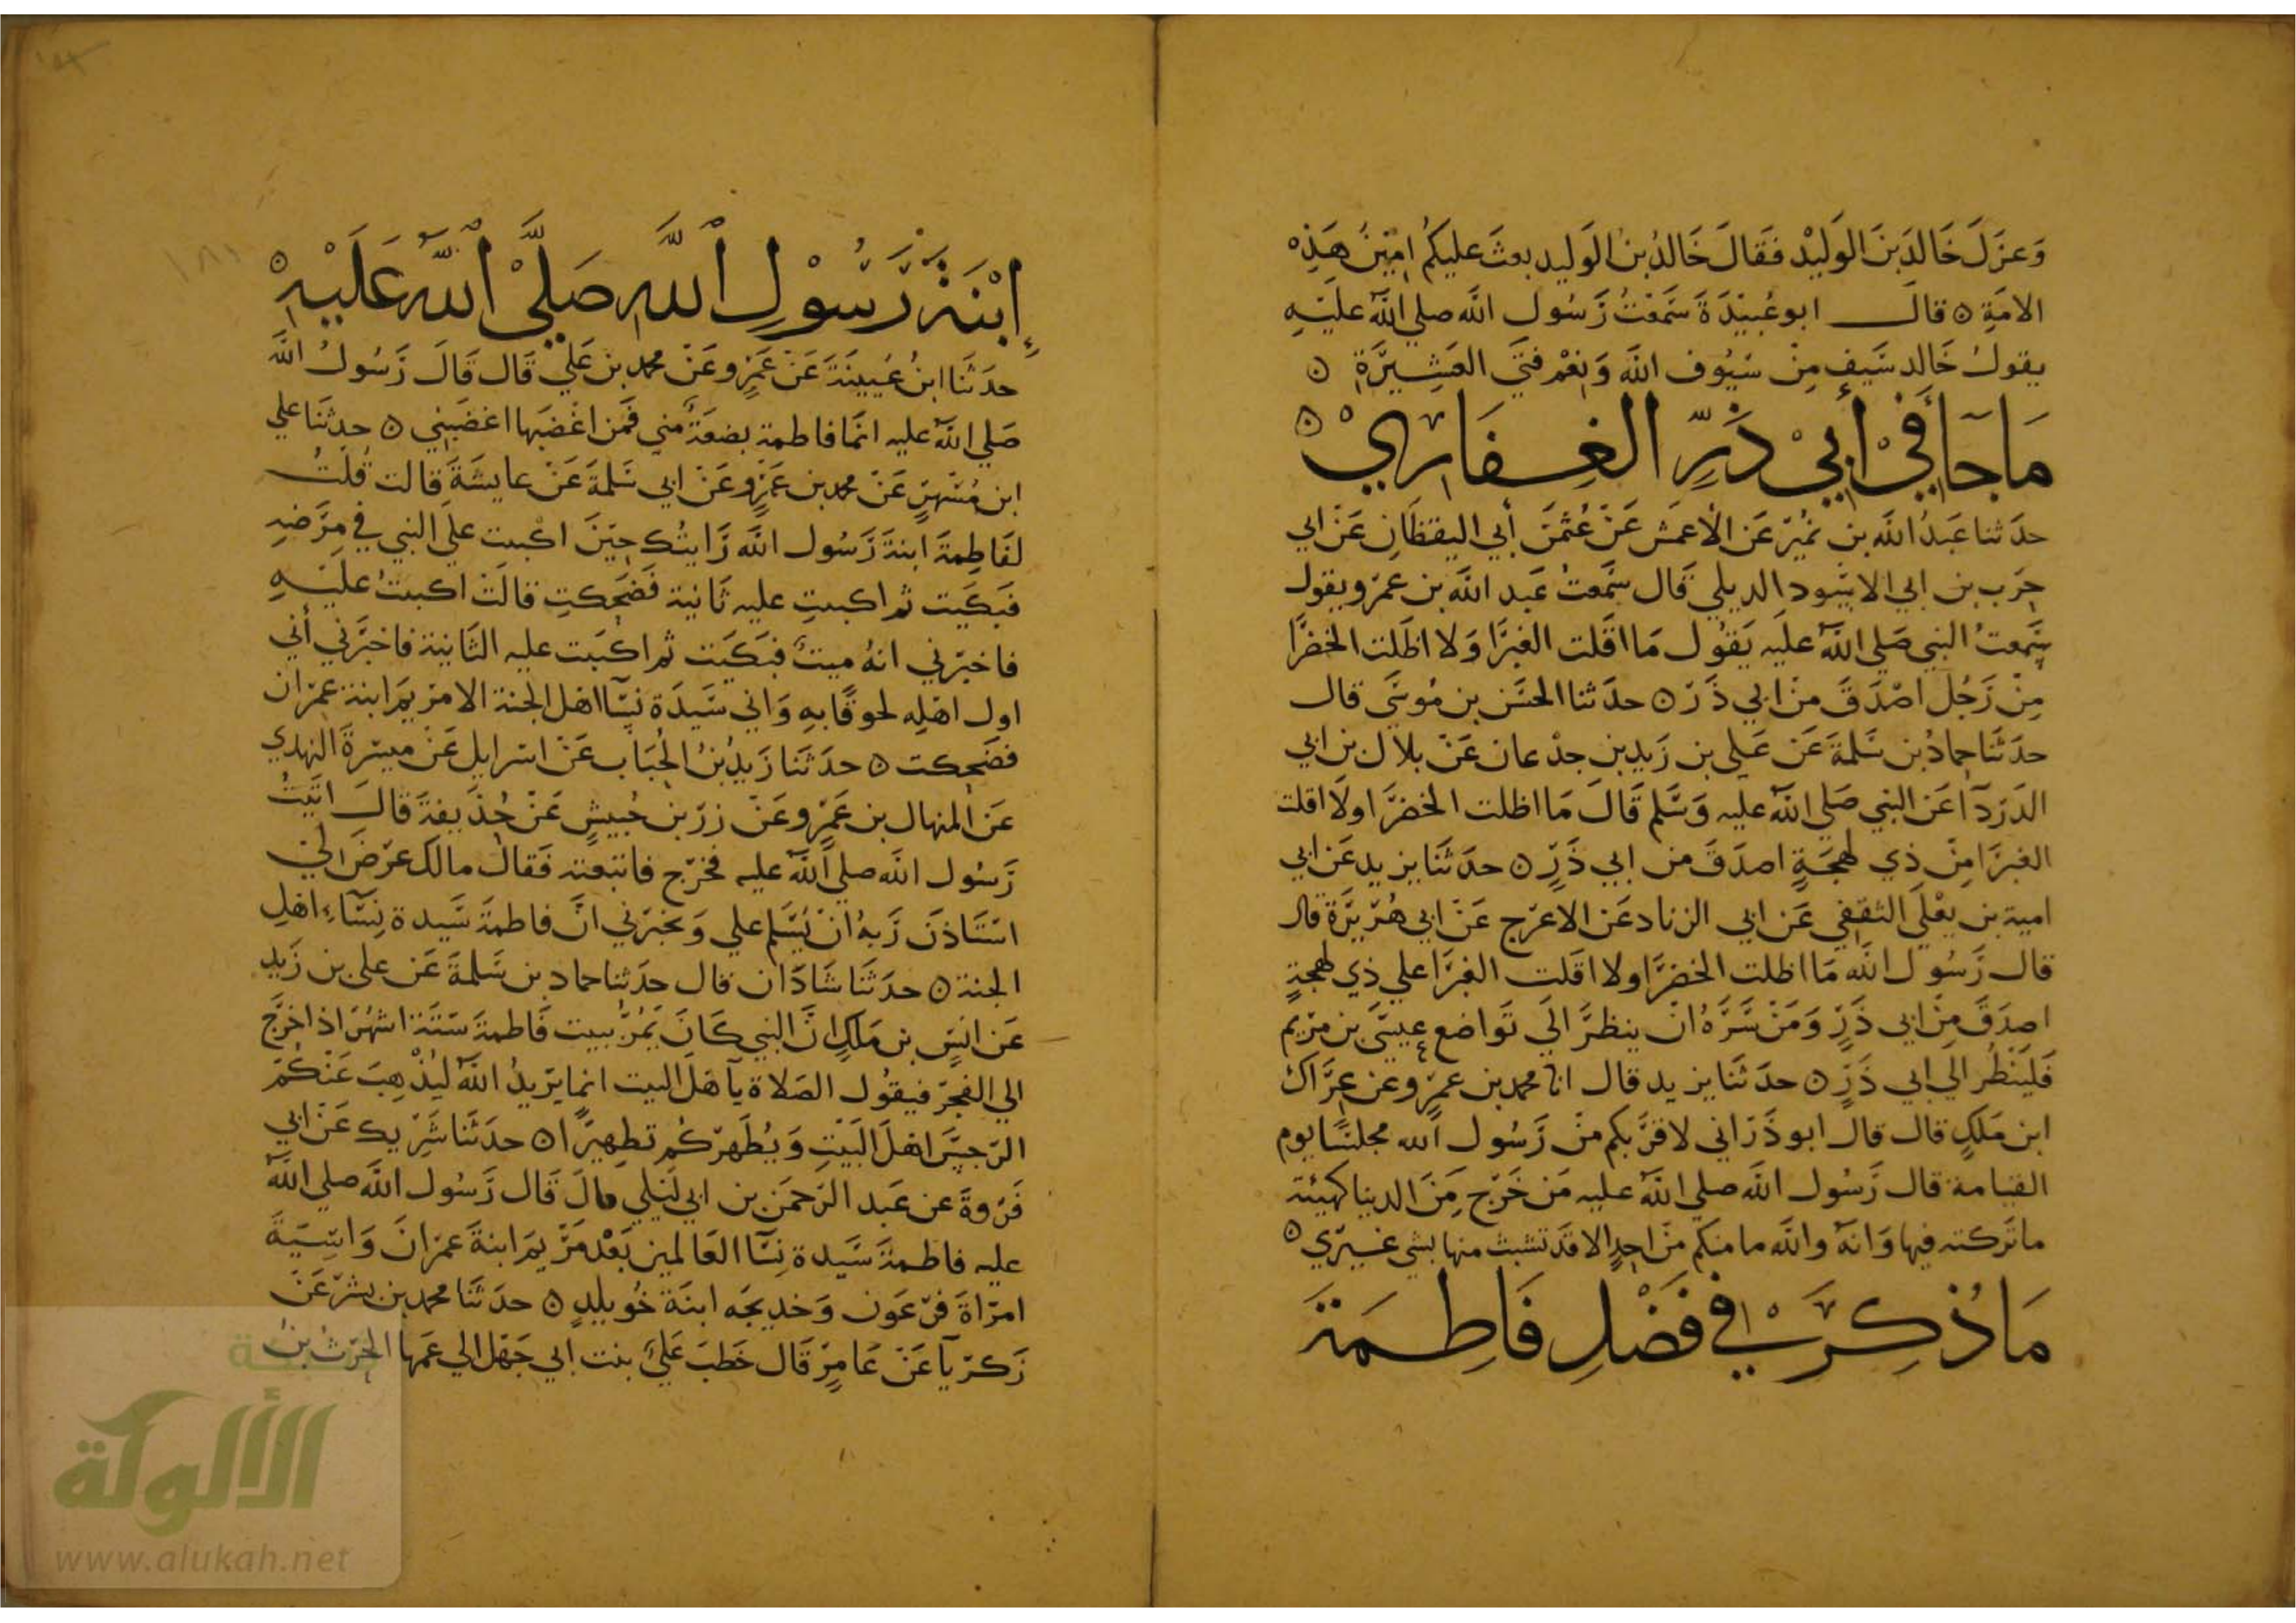 وَعزَلَ خَالدَ بنَ الوَليْد فقَالَ خَالدُ بنُ الوَليد بعثَ عليكمُ امِينَ هَذِه
الامَةِ ٥ قال ابو عُبيْدَةَ سَمعْتُ رَسُول الله صلي اللهُ عليْهِ
يقولُ خَالد سَيفٍ مِنْ سيُوف الله وَنعْم فتَى العَشِيرَةِ ٥
مَا جَا فيْ أبيْ ذَرّ الغِفَاريْ ٥
حدَثنا عَبدُ الله بن نمُيْر عَن الأعمَش عَنْ عُثمَنَ أبي اليقظَانِ عَن ابي
حرَب بن ابي الاسَود الديلي قَال سَمعتُ عَبد الله بن عَمرو يقول
سَمعتُ النبي صَلي اللهُ علَيه يَقوُل مَا اقَلت الغبرَا وَلا اظَلت الخضرَا
مِنْ رَجُل اصْدَقَ منْ ابي ذَرّ ٥ حدَثنا الحسَن بن مُوسَى قال
حدَثَنَا حمادُ بن سَلمةَ عَن عَلي بن زَيد بن جدْعان عَنْ بلال بن ابي
الدَردَآ عَن النبي صَلي اللهُ عليه وَسَلم قَالَ مَا اظلت الخضرَا ولا اقلت
الغبرَا مِنْ ذي لهجَةٍ اصدَقَ من ابي ذَرٍّ ٥ حدَثَنَا يزيد عَن ابي
امية بن يعْلَى الثقفي عَن ابي الزناد عَن الاعرَج عَنْ ابي هُرَيرَة قال
قال رَسُول الله مَا اظلت الخضرَا ولا اقَلت الغبرَا علي ذي لهجةٍ
اصدَقَ مِن ابي ذَرٍّ وَمَنْ سَرَّهُ انْ ينظرَ الَي تَواضع عِيسَى بن مرَيم
فَليَنْظُر الَي ابي ذَرٍّ ٥ حدَثنَا يزيد قال انا محمد بن عمرٍو عَن عِرَاك
ابن مَلكٍ قال قال ابو ذَرّ اني لاقرَبكم منْ رَسُول الله مجلسًا يوم
القيامة قال رَسُول الله صلي اللهُ عليه مَن خَرَج مِنَ الدنيا كهيئة
ما تَركته فيها وَانهُ والله ما منكم منَ احدٍ الا قدَ تشبث منها بشي غيرَي ٥
مَا ذُكِرَ فيْ فَضْلِ فَاطِمَةَ
إبْنَةَ رَسُوْلِ اللهِ صَلَّيْ اللهُ عَلَيْهِ ٥
حدَثنَا ابنُ عُيينَةَ عَنْ عَمرٍو عَنْ محمد بن عَلي قَال قَالَ رَسُولُ الله
صَلي اللهُ عليه انمَا فاطمة بضعَةٌ مني فمَن اغْضبَها اغضبَني ٥ حدثنَا علي
ابن مُسْهرٍ عَنْ محمد بن عَمرٍو عَنْ ابي سَلمةَ عَنْ عايشَةَ قالت قُلتُ
لفَاطِمةَ ابنةَ رَسُول الله رَايتُك حِيْنَ اكببت علَى النبي في مرَضه
فبَكيَت ثم اكببتِ عليه ثَانية فَضحِكتِ قالَتْ اكببتُ عليْهِ
فاخبرَني انهُ ميتٌ فبَكيَت ثم اكبَبت عليه الثَانية فاخبرَني أنَي
اول اهْلِه لحوقًا بهِ وَاني سَيدَة نسَآ اهل الجنة الا مرَيمَ ابنة عمرَان
فضَحِكت ٥ حدَثَنَا زَيدُ بْنُ الحُبَاب عَنْ اسرَايل عَنْ ميسرةَ النهدي
عَن المنهال بن عَمرٍو عَنْ زرّ بن حُبيشٍ عَنْ حُذَيفةَ قالَ اتَيتُ
رَسُول الله صلي اللهُ عليه فخرَج فاتبعته فَقالُ مالك عرَضَ لي
استَاذنَ رَبهُ انْ يُسَلم علي وَيخبرَني انَّ فاطمةَ سَيدة نِسَآءِ اهْلِ
الجنة ٥ حدَثَنَا شَاذَان قال حدَثنا حماد بن سَلمةَ عَن علي بن زَيد
عَن انَسٍ بن مَلكٍ انَّ النبي كَانَ يَمُرُّ ببيت فَاطمةَ ستَة اشهُر اذا خرَجَ
الي الفجرَ فيقوُل الصَلاة يَآ هَل البيت انما يرَيدُ اللهُ ليُذْهِبَ عَنْكم
الرَجسَ اهْلَ البَيْتِ وَيُطَهرَكُم تطِهيرًا ٥ حدَثَنَا شَرِيك عَنْ ابي
فَرَوةَ عن عَبد الرَحمَن بن ابي لَيْلي قالَ قَال رَسُول الله صلي اللهُ
عليه فاطمةَ سَيدة نسَآ العَالمين بَعْدَ مَرَيمَ ابنةَ عمرَانَ وَاسِيةَ
امرَاةَ فرَعَون وَخديجَه ابنَة خُويلدٍ ٥ حدَثنَا محمد بن بشرَ عَنْ
زَكرَيآ عَنْ عَامِرٍ قَال خَطبَ عَليُ بنت ابي جَهْل الي عَمها الحرَثُ بنُ
الألوكة
www.alukah.net